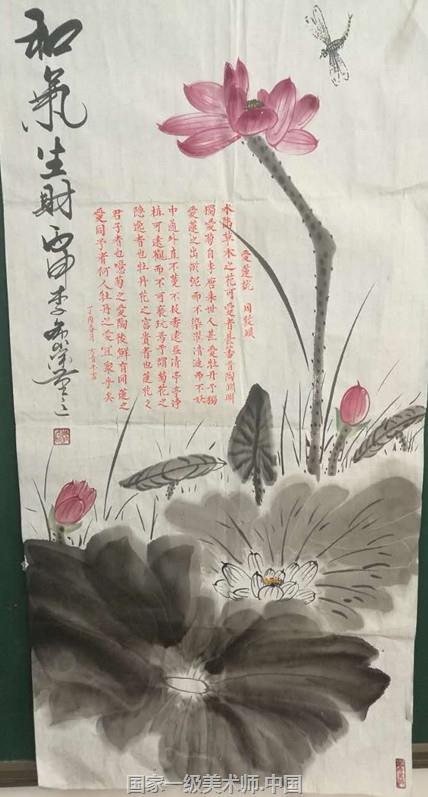 和氣生財
愛蓮說 周敦頤
水陸草木之花可愛者甚蕃晉陶淵明
獨愛菊自李唐來世人甚愛牡丹予獨
愛蓮之出淤泥而不染濯清漣而不妖
中通外直不蔓不枝香遠益清亭亭淨
植可遠觀而不可褻玩焉予謂菊花之
隱逸者也牡丹花之富貴者也蓮花之
君子者也噫菊之愛陶後鮮有聞蓮之
愛同予者何人牡丹之愛宜眾乎矣
丁酉春月
国家一级美术师.中国